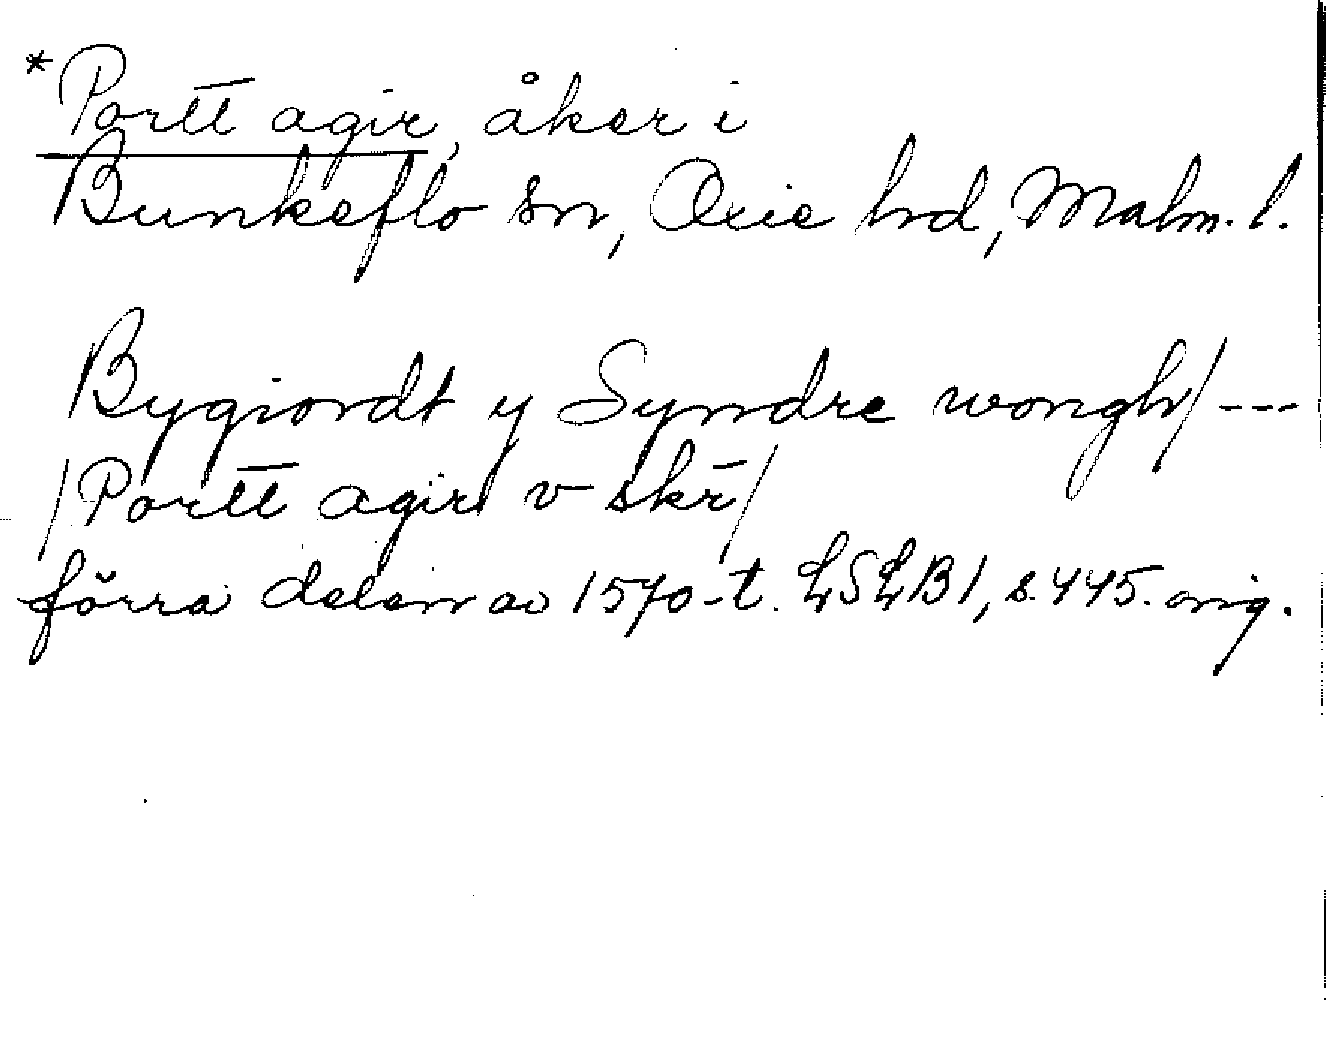 *Portt agir, åker i
Bunkeflo sn, Oxie hrd, Malm. l.
Bygiordt y Syndre wongh/ ---
/Portt agir v skr/
förra delen av 1570-t. LSLB1, s. 445. orig.